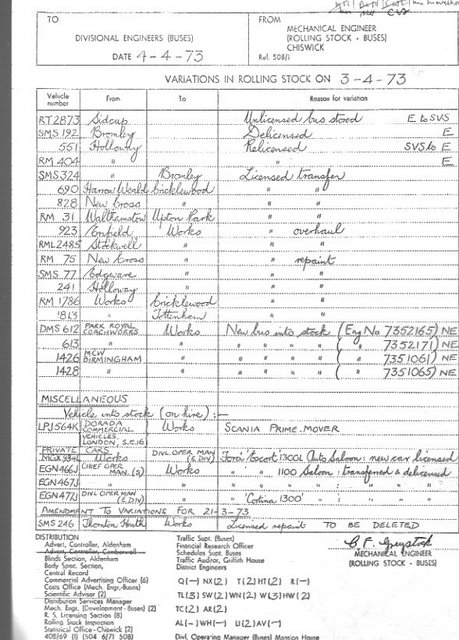 TO
DIVISIONAL ENGINEERS (BUSES)
DATE 4-4-73
FROM
MECHANICAL ENGINEER
(ROLLING STOCK - BUSES)
CHISWICK
Ref. 508/1
VARIATIONS IN ROLLING STOCK ON 3-4-73
Vehicle number From To Reason for variation
RT2873 Sidcup Unlicensed bus stored E to SVS
SMS 192 Bromley Delicensed E
551 Holloway Relicensed SVS to E
RM 404 " " E
SMS 324 " Bromley Licensed transfer
690 Harrow Weald Cricklewood " "
828 New Cross " " "
RM 31 Walthamstow Upton Park " "
923 Enfield Works " overhaul
RML2485 Stockwell " " "
RM 75 New Cross " " repaint
SMS 77 Edgware " " "
241 Holloway " " "
RM 1786 Works Cricklewood " "
1813 " Tottenham " "
DMS 612 PARK ROYAL COACHWORKS Works New bus into stock (Eng No 7352165) NE
613 " " " " " " ( " " 7352171) NE
1426 MCW BIRMINGHAM " " " " " ( " " 7351061) NE
1428 " " " " " " ( " " 7351065) NE
MISCELLANEOUS
Vehicle into stock (on hire) :-
LPJ564K DORADA COMMERCIAL VEHICLES, LONDON, S.E.16) Works SCANIA PRIME-MOVER
PRIVATE CARS
Works DIVL OPER MAN (E. DIV) 'Ford' 'Escort' 1300L Auto Saloon: new car licensed
EGN466J CHIEF OPER MAN (S) Works " " 1100 Saloon: transferred & delicensed
EGN467J " " " " " " " "
EGN477J DIVL OPER MAN (E. DIV) " " 'Cortina 1300' " " "
AMENDMENT TO VARIATIONS FOR 21-3-73
SMS 246 Thornton Heath Works Licensed repaint TO BE DELETED
DISTRIBUTION
Advert, Controller, Aldenham
Advert, Controller, Camberwell
Blinds Section, Aldenham
Body Spec, Section,
Central Record
Commercial Advertising Officer (6)
Costs Office (Mech. Engr.-Buses)
Scientific Adviser (2)
Distribution Services Manager
Mech. Engr. (Development - Buses) (2)
R. S. Licensing Section (8)
Rolling Stock Inspection
Statistical Office - Chiswick (2)
408/69 (1) (504 6/7) 508
Traffic Supt. (Buses)
Financial Research Officer
Schedules Supt. Buses
Traffic Auditor, Griffith House
District Engineers
Q(-) NX(2) T(2) HT(2) R(-)
TL(3) SW(2) WN(2) WL(3) HW(2)
TC(2) AR(2)
AL(-) WH(-) U(2) AV(-)
Divl. Operating Manager (Buses) Mansion House
MECHANICAL ENGINEER
(ROLLING STOCK - BUSES)